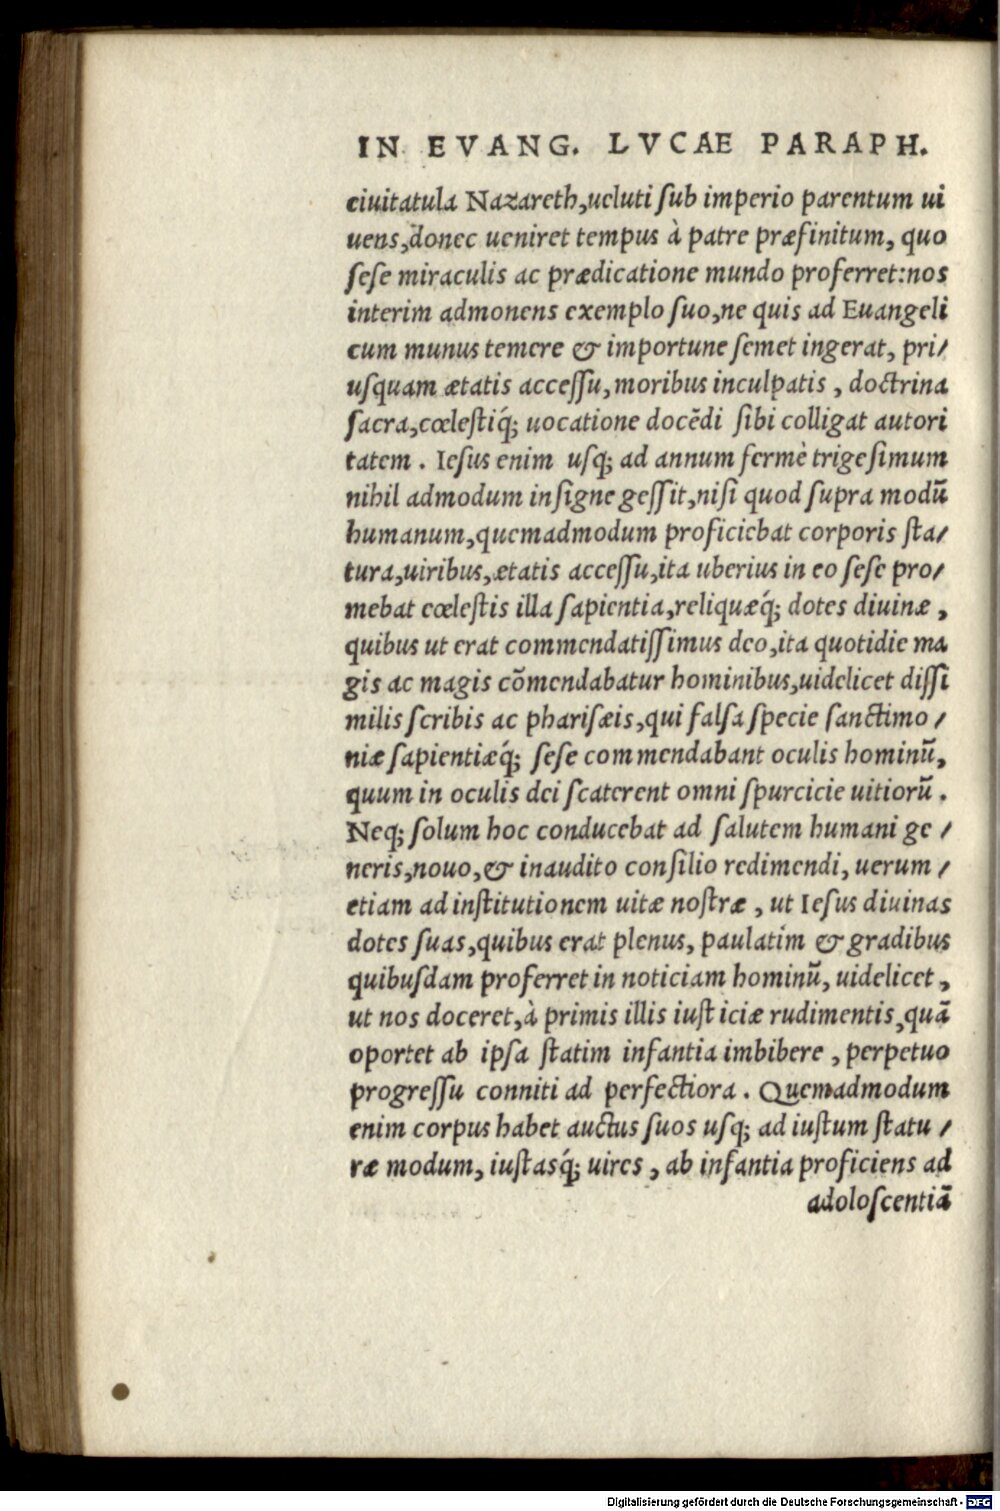 IN EVANG. LVCAE PARAPH.
ciuitatula Nazareth,ueluti ſub imperio parentum ui
uens,donec ueniret tempus à patre præfinitum, quo
ſeſe miraculis ac prædicatione mundo proferret:nos
interim admonens exemplo ſuo,ne quis ad Euangeli
cum munus temere & importune ſemet ingerat, pri/
uſquam ætatis acceſſu,moribus inculpatis , doctrina
ſacra,cœleſtiq́; uocatione docēdi ſibi colligat autori
tatem . Ieſus enim uſq; ad annum fermè trigeſimum
nihil admodum inſigne geſſit,niſi quod ſupra modū
humanum,quemadmodum proficiebat corporis ſta/
tura,uiribus,ætatis acceſſu,ita uberius in eo ſeſe pro/
mebat cœleſtis illa ſapientia,reliquæq́; dotes diuinæ ,
quibus ut erat commendatiſſimus deo,ita quotidie ma
gis ac magis cōmendabatur hominibus,uidelicet diſſi
milis ſcribis ac phariſæis,qui falſa ſpecie ſanctimo /
niæ ſapientiæq́; ſeſe commendabant oculis hominū,
quum in oculis dei ſcaterent omni ſpurcicie uitiorū .
Neq; ſolum hoc conducebat ad ſalutem humani ge /
neris,nouo,& inaudito conſilio redimendi, uerum /
etiam ad inſtitutionem uitæ noſtræ , ut Ieſus diuinas
dotes ſuas,quibus erat plenus, paulatim & gradibus
quibuſdam proferret in noticiam hominū, uidelicet ,
ut nos doceret,à primis illis iuſticiæ rudimentis,quā
oportet ab ipſa ſtatim infantia imbibere , perpetuo
progreſſu conniti ad perfectiora . Quemadmodum
enim corpus habet auctus ſuos uſq; ad iuſtum ſtatu /
ræ modum, iuſtasq́; uires , ab infantia proficiens ad
adoloſcentiā
Digitalisierung gefördert durch die Deutsche Forschungsgemeinschaft - DFG